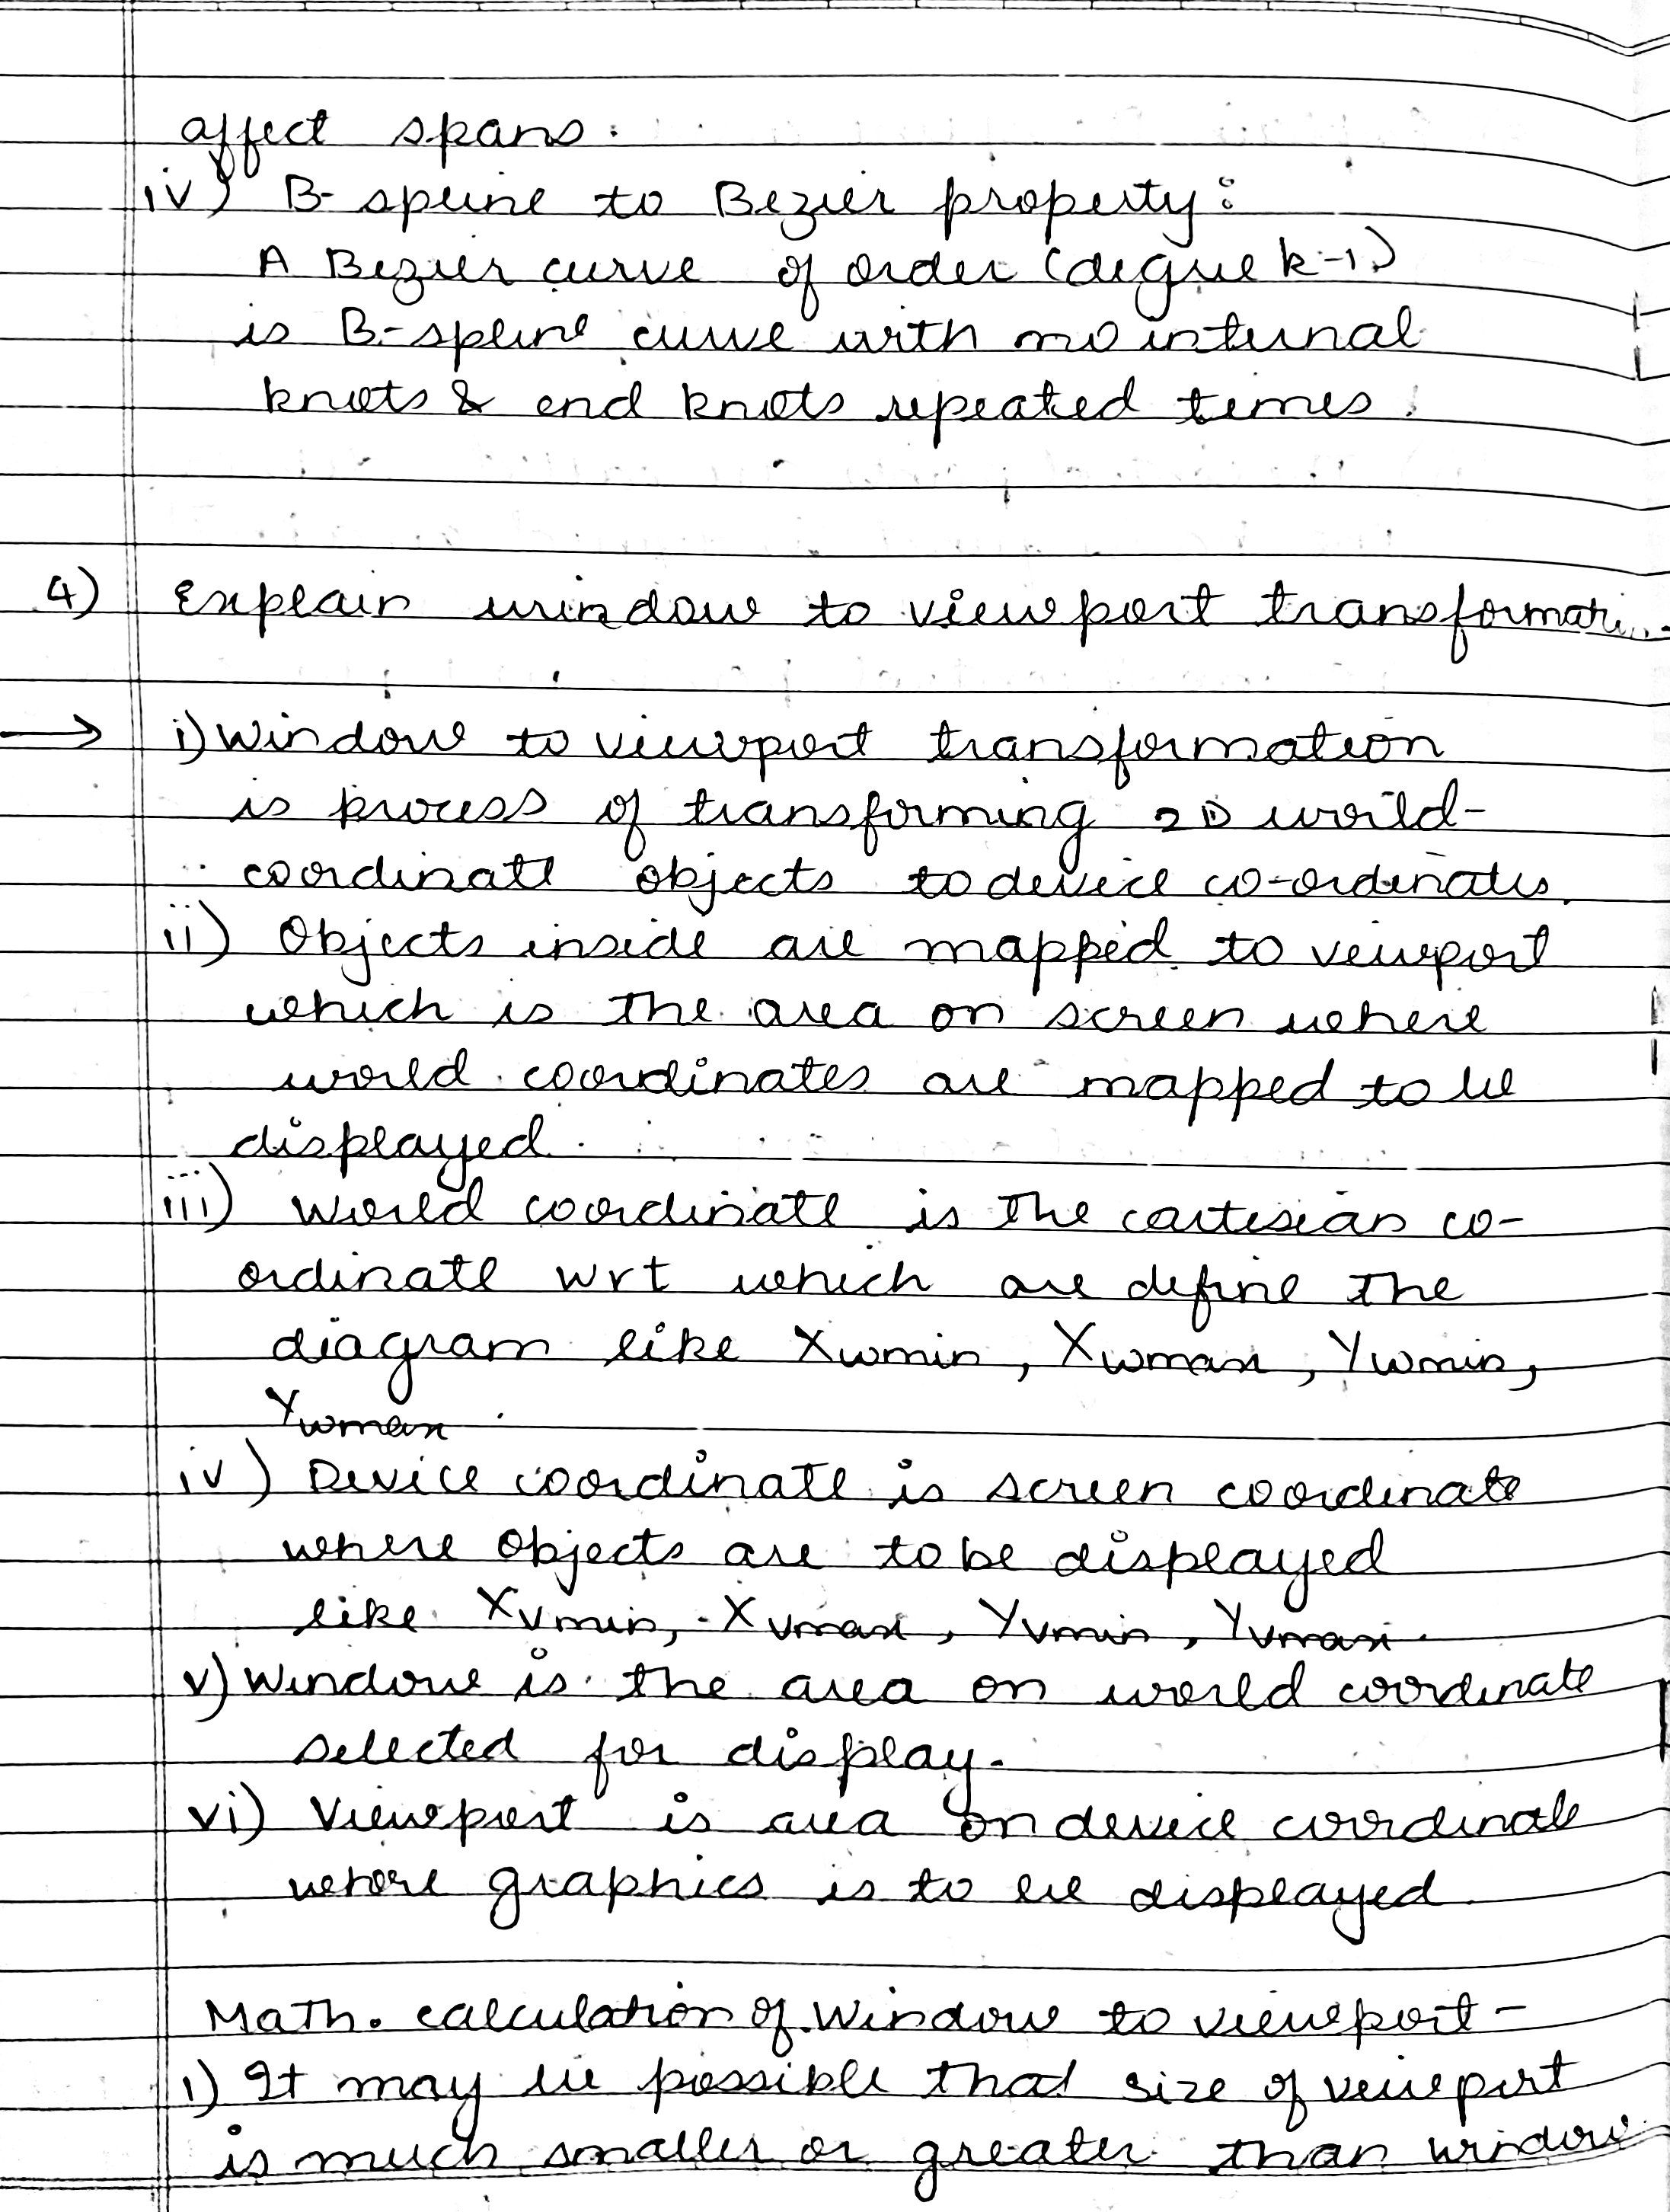 affect spans.
iv) B-spline to Bezier property:
A Bezier curve of order (degree k-1)
is B-spline curve with no internal
knots & end knots repeated times.
4) Explain window to viewport
→ i) Window to viewport transformation
is process of transforming 2D world-
coordinate objects to device co-ordinates.
ii) Objects inside are mapped to veiwport
which is the area on screen where
world coordinates are mapped to be
displayed.
iii) World coordinate is the cartesian co-
ordinate wrt which are define the
diagram like Xwmin, Xwmax, Ywmin,
Ywmax.
iv) Device coordinate is screen coordinate
where objects are to be displayed
like Xvmin, Xvmax, Yvmin, Yvmax.
v) Window is the area on world coordinate
selected for display.
vi) Viewport is area on device coordinate
where graphics is to be displayed.
Math. calculation of Window to viewport -
i) It may be possible that size of veiwport
is much smaller or greater than window